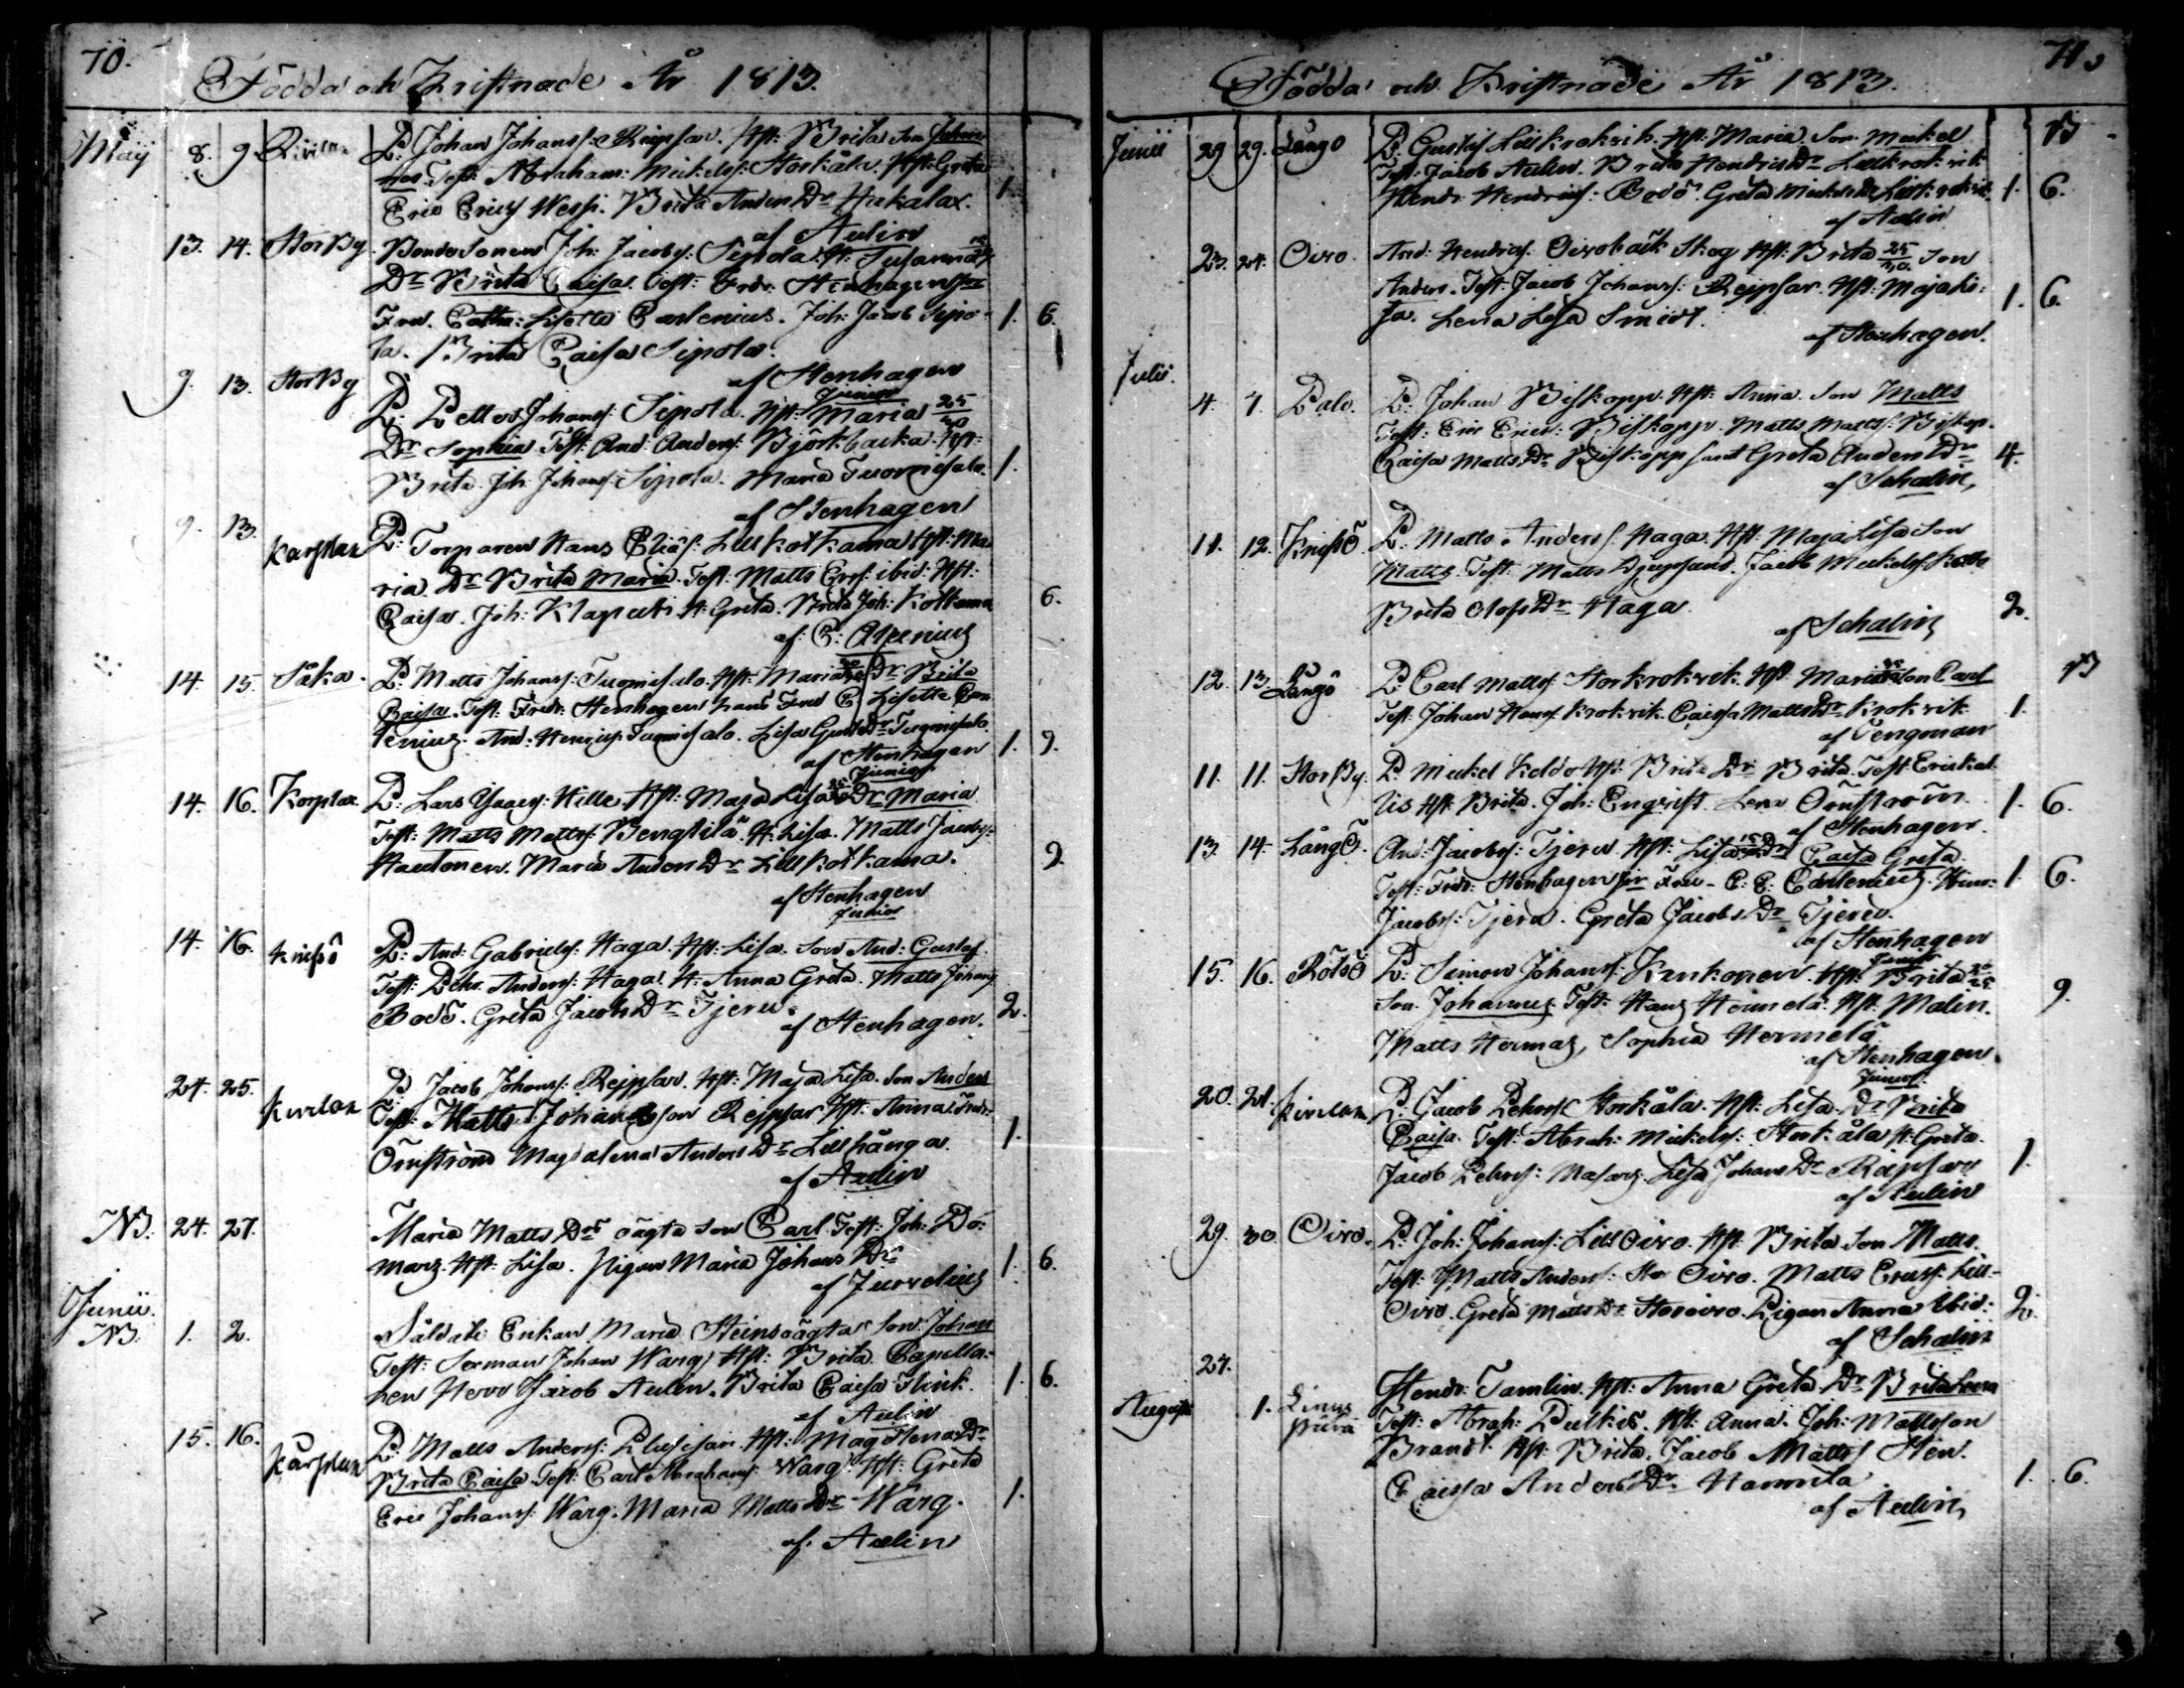 70.
Födda och Kristnade År 1813.
Maji 8. 9. P: Johan Johanss: Reipsar. Hst: Brita Son Johan-
nes Test: Abraham: Mickelss: Storkåla. Hst: Greta
Eric Ericss Wessi. Brita Anders Dr Hukalax. 1.
af Aulin
13. 14. StorBy. BondeSonen Joh: Jacobss: Sipola. H: Susanna
Dr Brita Caisa. Test: Fredr: Stenhagen
Fru. Catha: Lisette Carlenius. Joh: Jacob Sipo- 1. 6.
la. Brita Caisa Sipola.
af Stenhagen
Junior
9. 13. StorBy P: Petter Johanss: Sipola. Hst: Maria 25/30
Dr Sophia Test: And: Anderss: Björkbacka. Hst:
Brita. Joh: Johanss: Sipola. Maria Tuomisalo. 1.
af Stenhagen
9. 13. Karplax P: Torparen Hans Eliæs: Lillkotkama Hst: Ma
ria Dr Brita Maria. Test: Matts Erss: ibid: Hst:
Caisa. Joh: Klaputi H: Greta. Brita Joh: Kotkama 6.
af: E: Alcenius
14. 15. Såka. P: Matts Johanss: Tuomisalo. Hst: Maria Dr Brita
Caisa. Test: Fredr: Stenhagen hans Fru C: Lisette Car
lenius. And: Henrics: Tuomisalo. Lisa Gust: Dr Tuomisalo. 1. 9.
af Stenhagen
Junior
14. 16. Korplax. P: Lars Isacss: Hille. Hst: Maja Lisa Dr Maria
Test: Matts Mattss: Bengtilä. H: Lisa. Matts Jacobss:
Hautonen. Maria Anders Dr Lillkotkama. 9.
af Stenhagen
Junior
14. 16. Knifsö P: And: Gabrielss: Haga. Hst: Lisa. Son And: Gustaf.
Test: Pehr Anderss: Haga. H: Anna Greta. Matts Johanss
Bodö. Greta Jacobs Dr Tjeru. 2.
af Stenhagen.
24. 25. Kuvlax P: Jacob Johanss: Rejpsar. Hst: Maja Lisa. Son Anders
Test: Matts Johansson Rejpsar Hst: Anna. Fredr:
Örnström Magdalena Anders Dr Lillhånga. 1.
af Aulin
NB. 24. 27. Maria Matts Drs oägta son Carl Test: Joh: Do:
marz. Hst: Lisa. Pigan Maria Johans Dr 1. 6.
af Jurvelius
Junii.
NB. 1. 2. Såldate Enkan Maria Steins oägta Son Johan
Test: Serman Johan Warg, Hst: Brita. Capella-
nen Herr Jacob Aulin. Brita Caisa Flink. 1. 6.
af Aulin
15. 16. Karplax P: Matts Anderss: Hst: Mag Lena Dr
Brita Caisa Test: Carl Abrahams: Warg: Hst: Greta
Eric Johanss: Warg. Maria Matts Dr Warg. 1.
af. Aulin
71.
Födda och Kristnade År 1813.
Junii 29 29. Långö P: Gustaf Lillkrokvik. Hst: Maria. Son Mickel B
Test: Jacob Aulin. Brita Hendrics Dr Lillkrokvik
Hendr: Hendricss: Bodö. Greta Mickels Dr Lillkrokvik. 1. 6.
af Aulin
23. 24. Oivo. And: Hendrics: Oivobäck Skog Hst: Brita 25/30 Son
Anders. Test: Jacob Johanss: Rejpsar. Hst: Majali: 1. 6.
sa. Lena Lisa Smidt.
af Stenhagen.
Julii.
4. 7. Palo. P: Johan Biskopp. Hst: Anna. Son Matts
Test: Eric Ericss: Biskopp. Matts Mattss: Biskop.
Caisa Matts Dr Biskopp samt Greta Anders Dr 4.
af Schalin,
11. 12. Knifsö P: Matts Anderss. Haga. Hst: Maja Lisa Son
Matts. Test: Matts Djupsund. Jacob Mickelss
Brita Olofs Dr Haga. 2.
af Schalin
12. 13. Långö P: Carl Mattss Storkrokvik. Hst: Maria Son Carl B
Test: Johan Hanss Krokvik. Caissa Matts Dr Krokvik 1.
af Tengman
11. 11. StorBy. P: Mickel Keldo Hst: Brita Dr Brita. Test: Eric
Hst: Brita. Joh: Engvist. Lena Örnström. 1. 6.
af Stenhagen.
13. 14. Långö. And: Jacobss: Tjeru. Hst: Lisa Dr Caisa Greta.
Test: Fredr: Stenhagen jr Fru C: E: Carlenius. Hinr: 1. 6.
Jacobss: Tjeru. Greta Jacobs Dr Tjeru.
af Stenhagen
Junior
15. 16. Rölsö P: Simon Johanss: Kankonen Hst: Brita
Son Johannes. Test: Hans Hermelä: Hst: Malin. 9.
Matts Hermas, Sophia Hermelä
af Stenhagen.
Junior.
20. 21. Kuvlax P: Jacob Pehrss: Storkåla. Hst: Lisa Dr Brita
Caisa. Test: Abrah: Mickelss: Storkåla H: Greta.
Jacob Pehrss: Masarz. Lisa Johans Dr Reipsar 1.
af Aulin
29. 30. Oivo. P: Joh: Johanss: LillOivo. Hst: Brita Son Matts.
Test: Matts Anderss: Stor Oivo. Matts Erss: Lill-
Oivo. Greta Matts Dr Storoivo. Pigan Anna Ibid: 2.
af Schalin
27. Hendr: Tamlin. Hst: Anna Greta Dr Brita Lena
Augusti 1. Test: Abrah: Pulkis. Hst: Anna. Joh: Mattsson
Brandt. Hst: Brita. Jacob Mattss Sten.
Caissa Anders Dr Hannila 1. 6.
af Aulin,